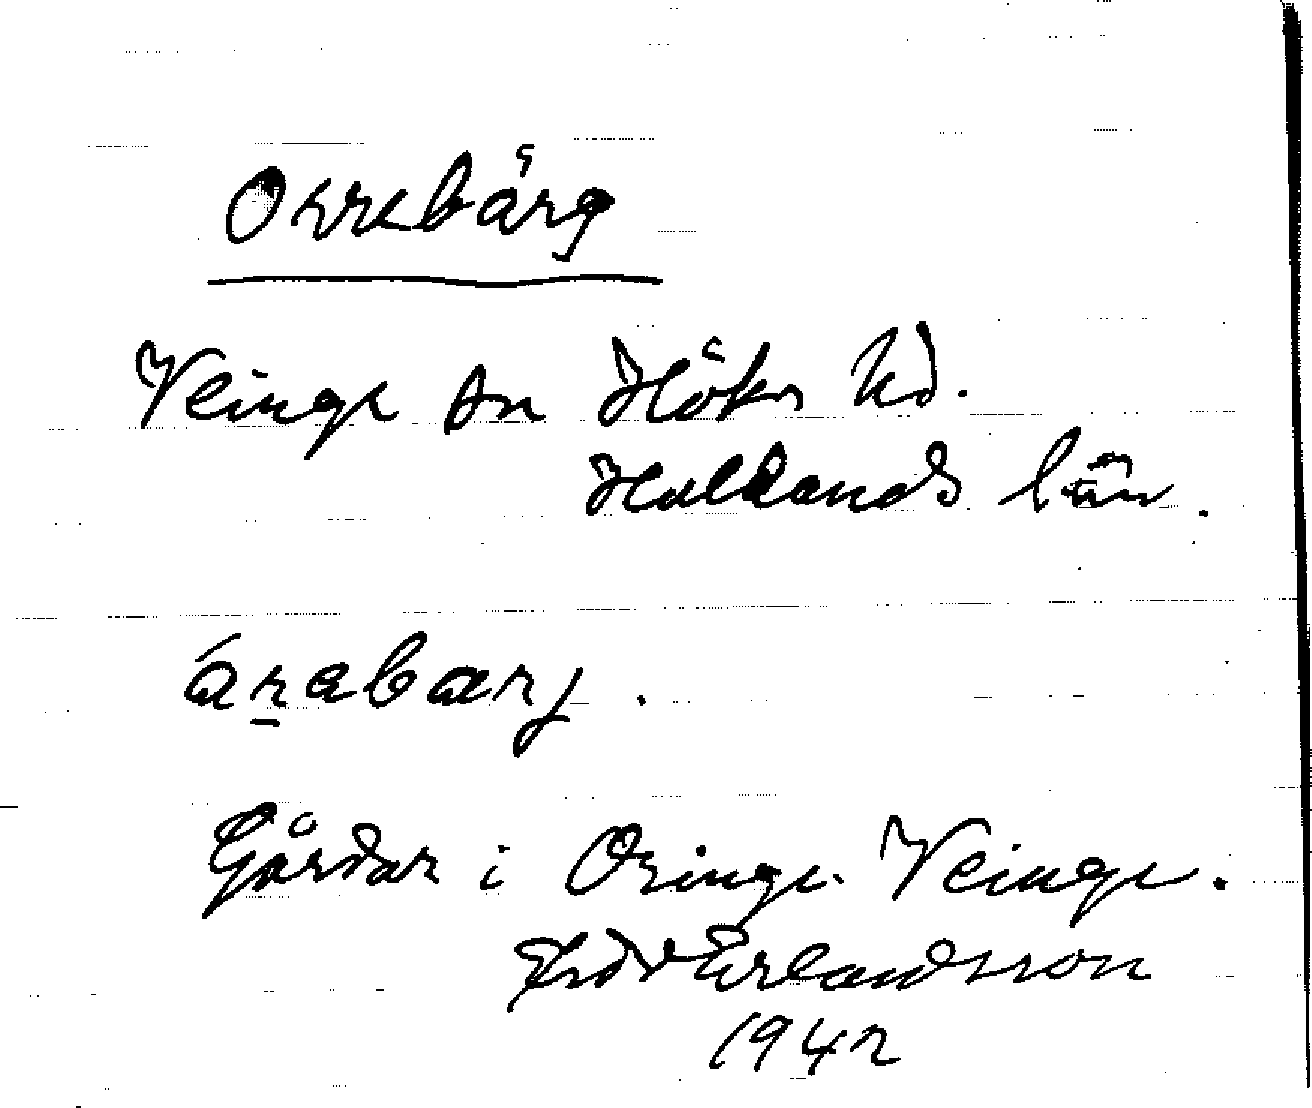 Orrebärg
Veinge sn Höks hd.
Hallands län.
áṟabarj.
Gårdar i Oringe. Veinge.
Erlandsson
1942